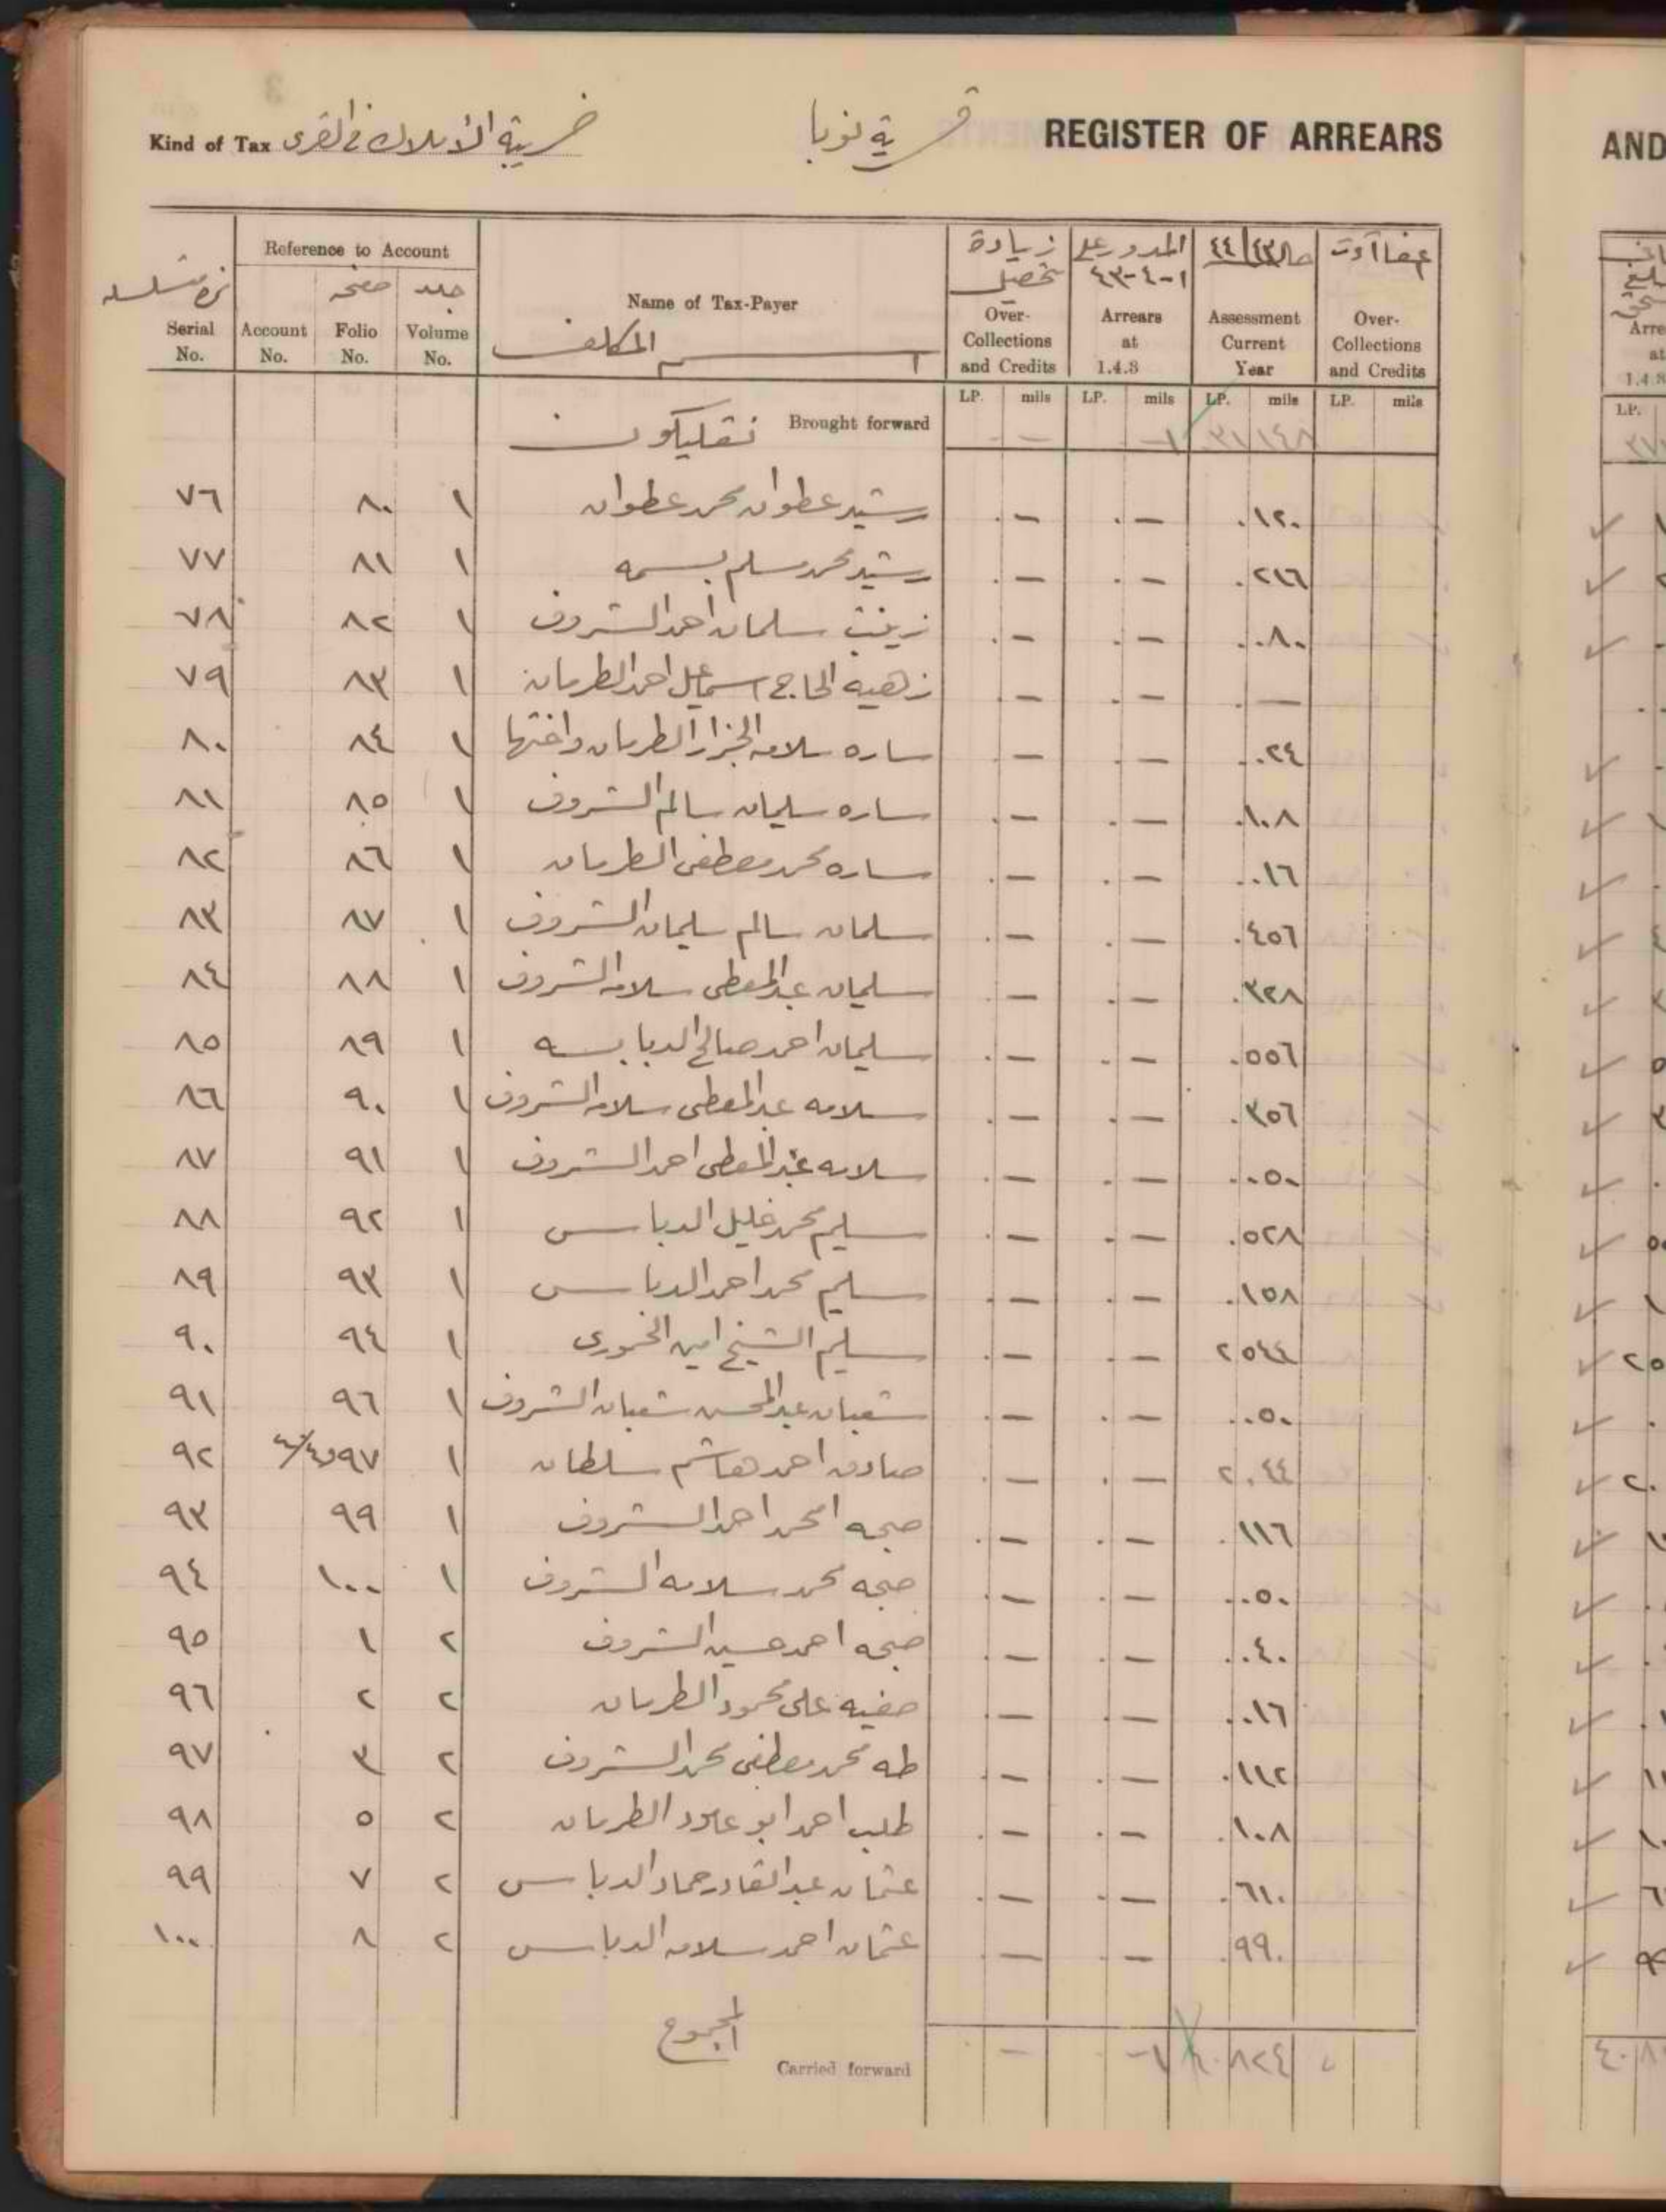 REGISTER OF ARREARS
قرية نوبا
Kind of Tax ضريبة الأملاك في القرى
Reference to Account
نمرة متسلسلة Serial No.
Account No.
صفحه Folio No.
جلد Volume No.
Name of Tax-Payer
اسم المكلف
زيادة تحصيل Over-Collections and Credits
المدور على ١-٤-٤٣ Arrears at 1.4.3
٤٤/٤٣ Assessment Current Year
Over-Collections and Credits
LP. mils LP. mils LP. mils LP. mils
Brought forward — — ٣١ ١٤٨
٧٦ ٨٠ ١ رشيد عطوان محمد عطوان . — . — .١٢٠
٧٧ ٨١ ١ رشيد محمد مسلم بسمه . — . — .٢١٦
٧٨ ٨٢ ١ زينب سلمان احمد الشروف . — . — .٠٨٠
٧٩ ٨٣ ١ زهيه الحاج اسماعيل احمد الطرمان . — . — . —
٨٠ ٨٤ ١ ساره سلامه الجزار الطرمان واختها . — . — .٠٢٤
٨١ ٨٥ ١ ساره سليمان سالم الشروف . — . — .١٠٨
٨٢ ٨٦ ١ ساره محمد مصطفى الطرمان . — . — .٠١٦
٨٣ ٨٧ ١ سلمان سالم سليمان الشروف . — . — .٤٥٦
٨٤ ٨٨ ١ سليمان عبد المعطى سلامه الشروف . — . — .٣٢٨
٨٥ ٨٩ ١ سليمان احمد صالح الدبابسه . — . — .٥٥٦
٨٦ ٩٠ ١ سلامه عبد المعطى سلامه الشروف . — . — .٣٥٦
٨٧ ٩١ ١ سلامه عبد المعطى احمد الشروف . — . — .٠٥٠
٨٨ ٩٢ ١ سليم محمد خليل الدباس . — . — .٥٢٨
٨٩ ٩٣ ١ سليم محمد احمد الدباس . — . — .١٥٨
٩٠ ٩٤ ١ سليم الشيخ امين الخمورى . — . — ٢ ٥٤٤
٩١ ٩٦ ١ شعبان عبد المحسن شعبان الشروف . — . — .٠٥٠
٩٢ ٩٧ ١ صادق احمد هاشم سلطان . — . — ٢ ٠٤٤
٩٣ ٩٩ ١ صبحه امحمد احمد الشروف . — . — .١١٦
٩٤ ١٠٠ ١ صبحه محمد سلامه الشروف . — . — .٠٥٠
٩٥ ١ ٢ صبحه احمد حسين الشروف . — . — .٠٤٠
٩٦ ٢ ٢ صفيه على محمود الطرمان . — . — .٠١٦
٩٧ ٣ ٢ طه محمد مصطفى محمد الشروف . — . — .١١٢
٩٨ ٥ ٢ طلب احمد ابو عامود الطرمان . — . — .١٠٨
٩٩ ٧ ٢ عثمان عبد القادر حماد الدباس . — . — .٦١٠
١٠٠ ٨ ٢ عثمان احمد سلامه الدباس . — . — .٩٩٠
المجموع
Carried forward — — ٨٢٤
AND
LP.